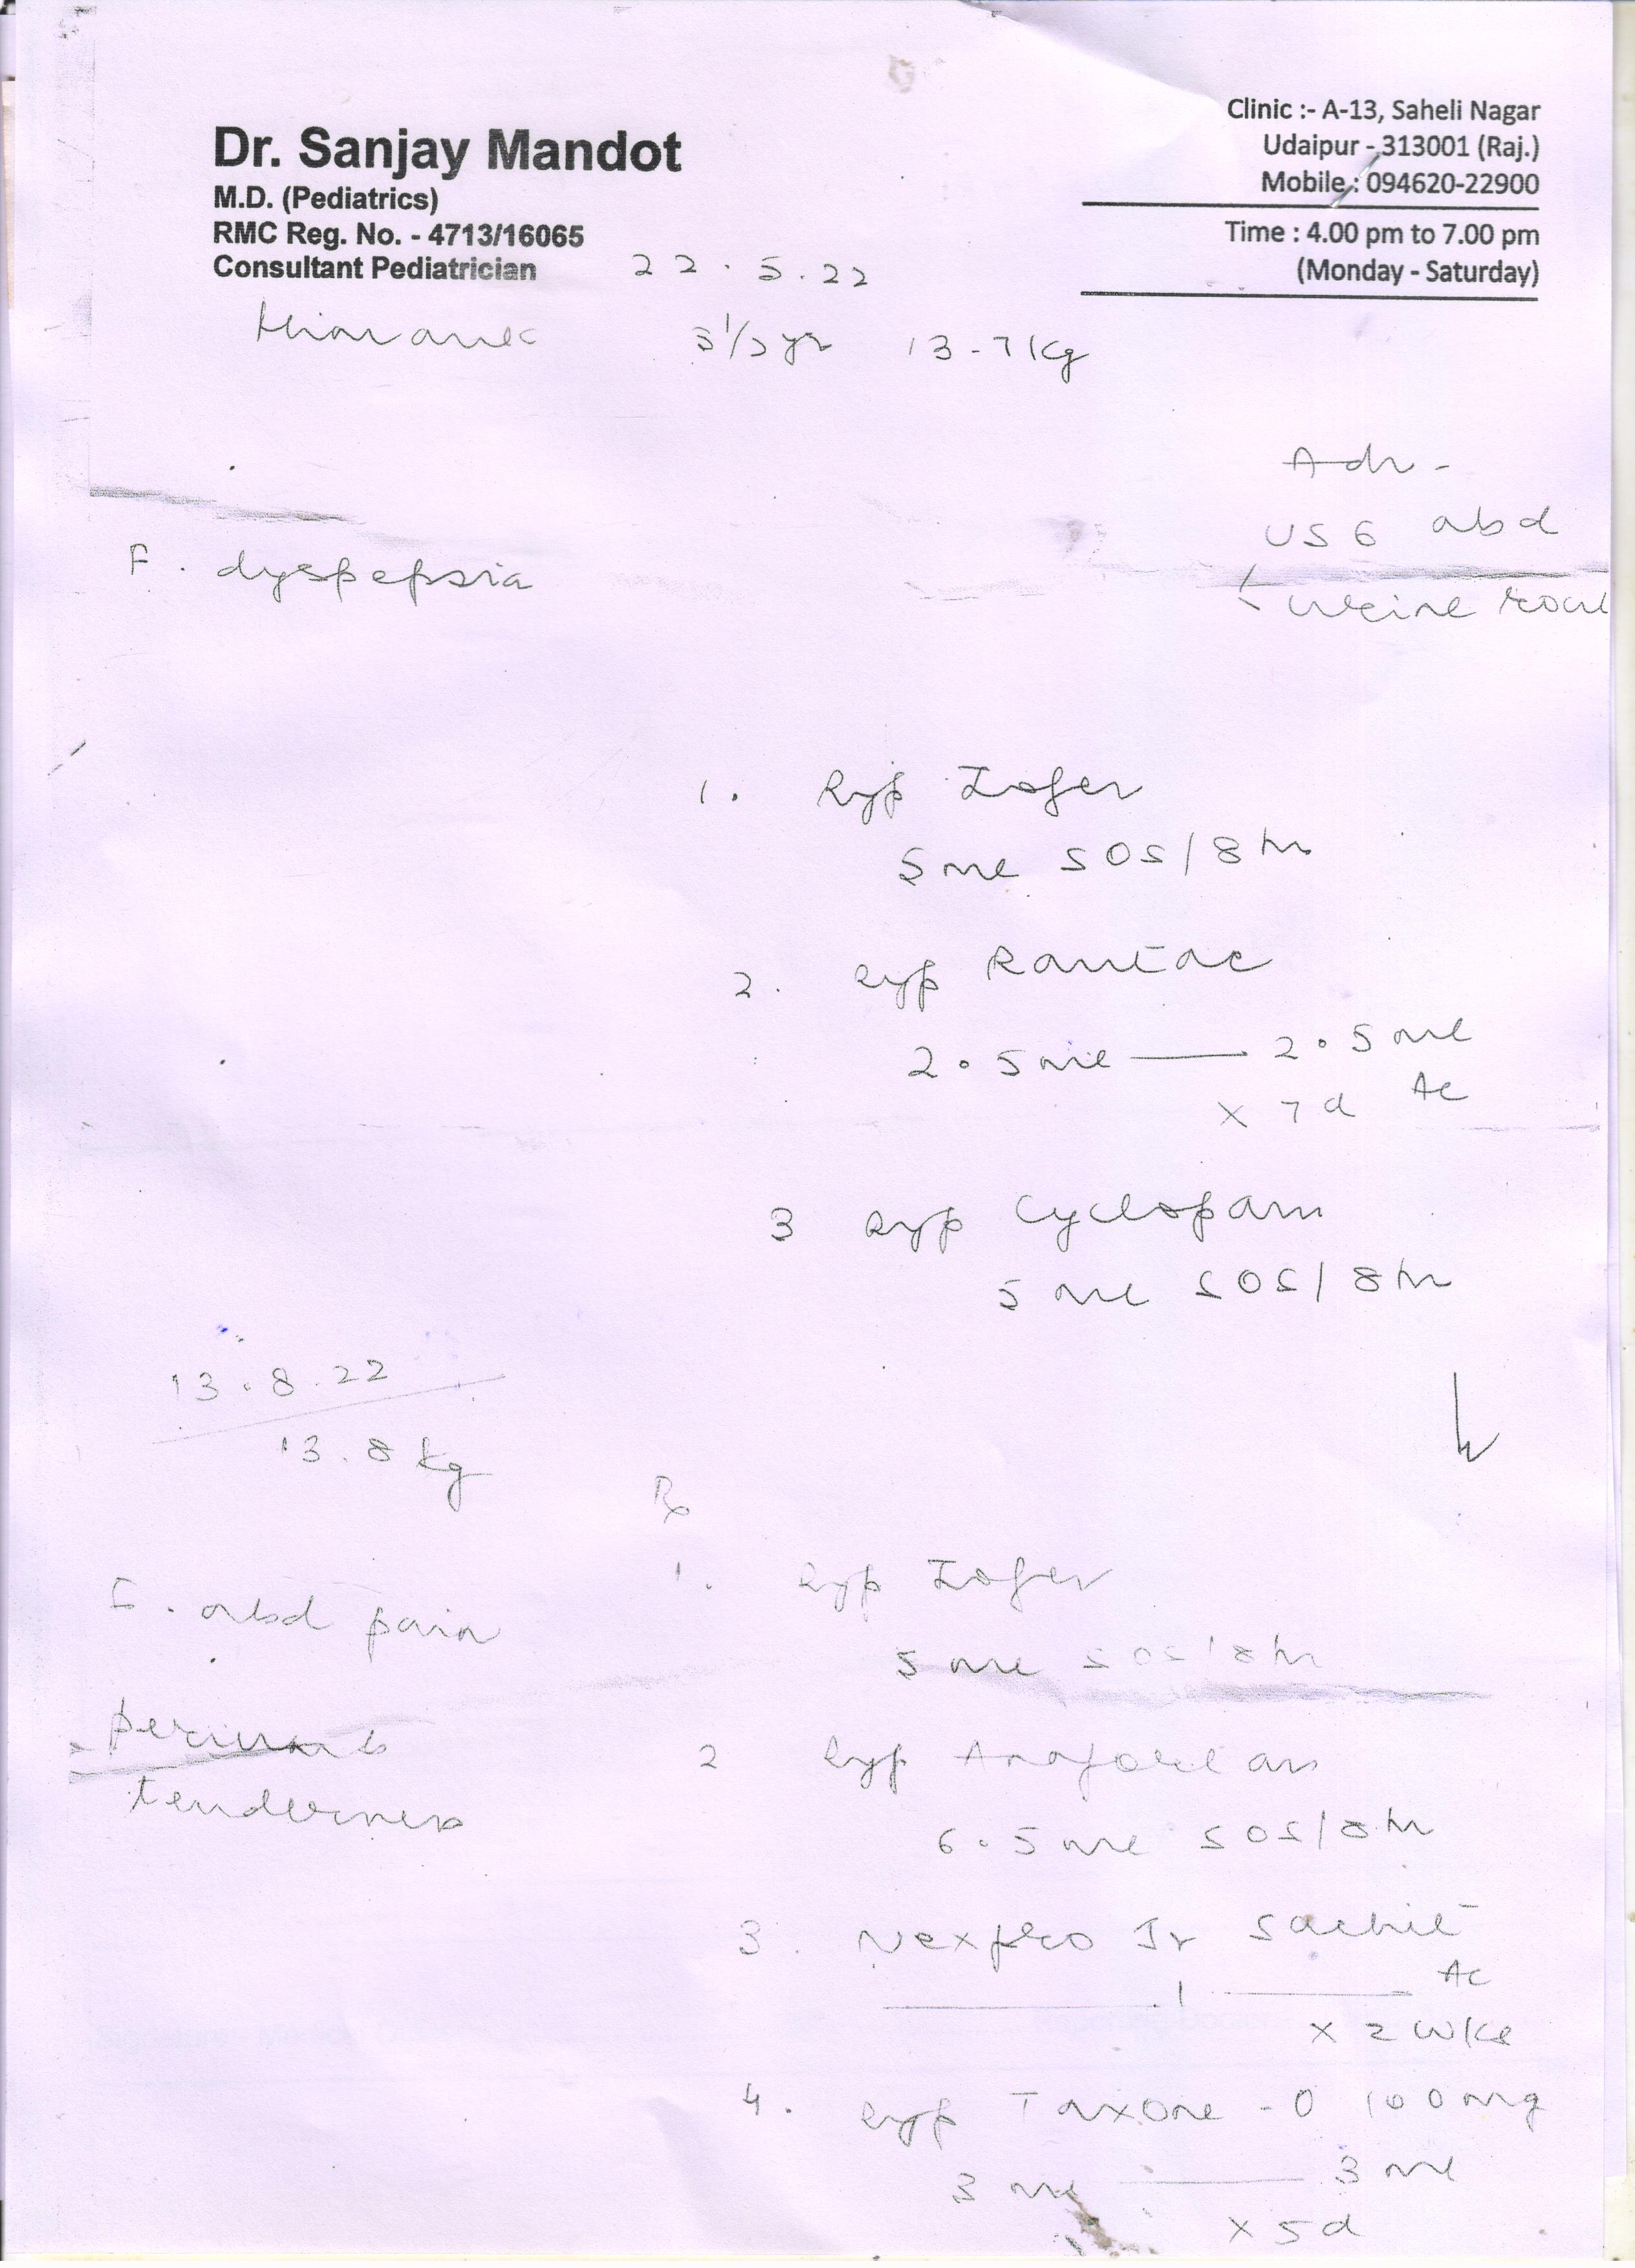 Dr. Sanjay Mandot
M.D. (Pediatrics)
RMC Reg. No. - 4713/16065
Consultant Pediatrician
Clinic :- A-13, Saheli Nagar
Udaipur - 313001 (Raj.)
Mobile : 094620-22900
Time : 4.00 pm to 7.00 pm
(Monday - Saturday)
22.5.22
13.7 kg
Adv -
USG abd
F. dyspepsia
urine
1. Syp Zofer
5 ml SOS/8 hr
2. Syp Rantac
2.5 ml — 2.5 ml
AC
x 7 d
3 Syp Cyclopam
5 ml SOS/8hr
13.8.22
13.8 kg
Rx
1. Syp Zofer
abd pain
5 ml SOS/8hr
2 Syp
tenderness
6.5 ml SOS/8hr
3. Nexpro Jr Sachet
— 1 — AC
x 2 wks
4. Syp Taxone - O 100 mg
3 ml — 3 ml
x 5 d